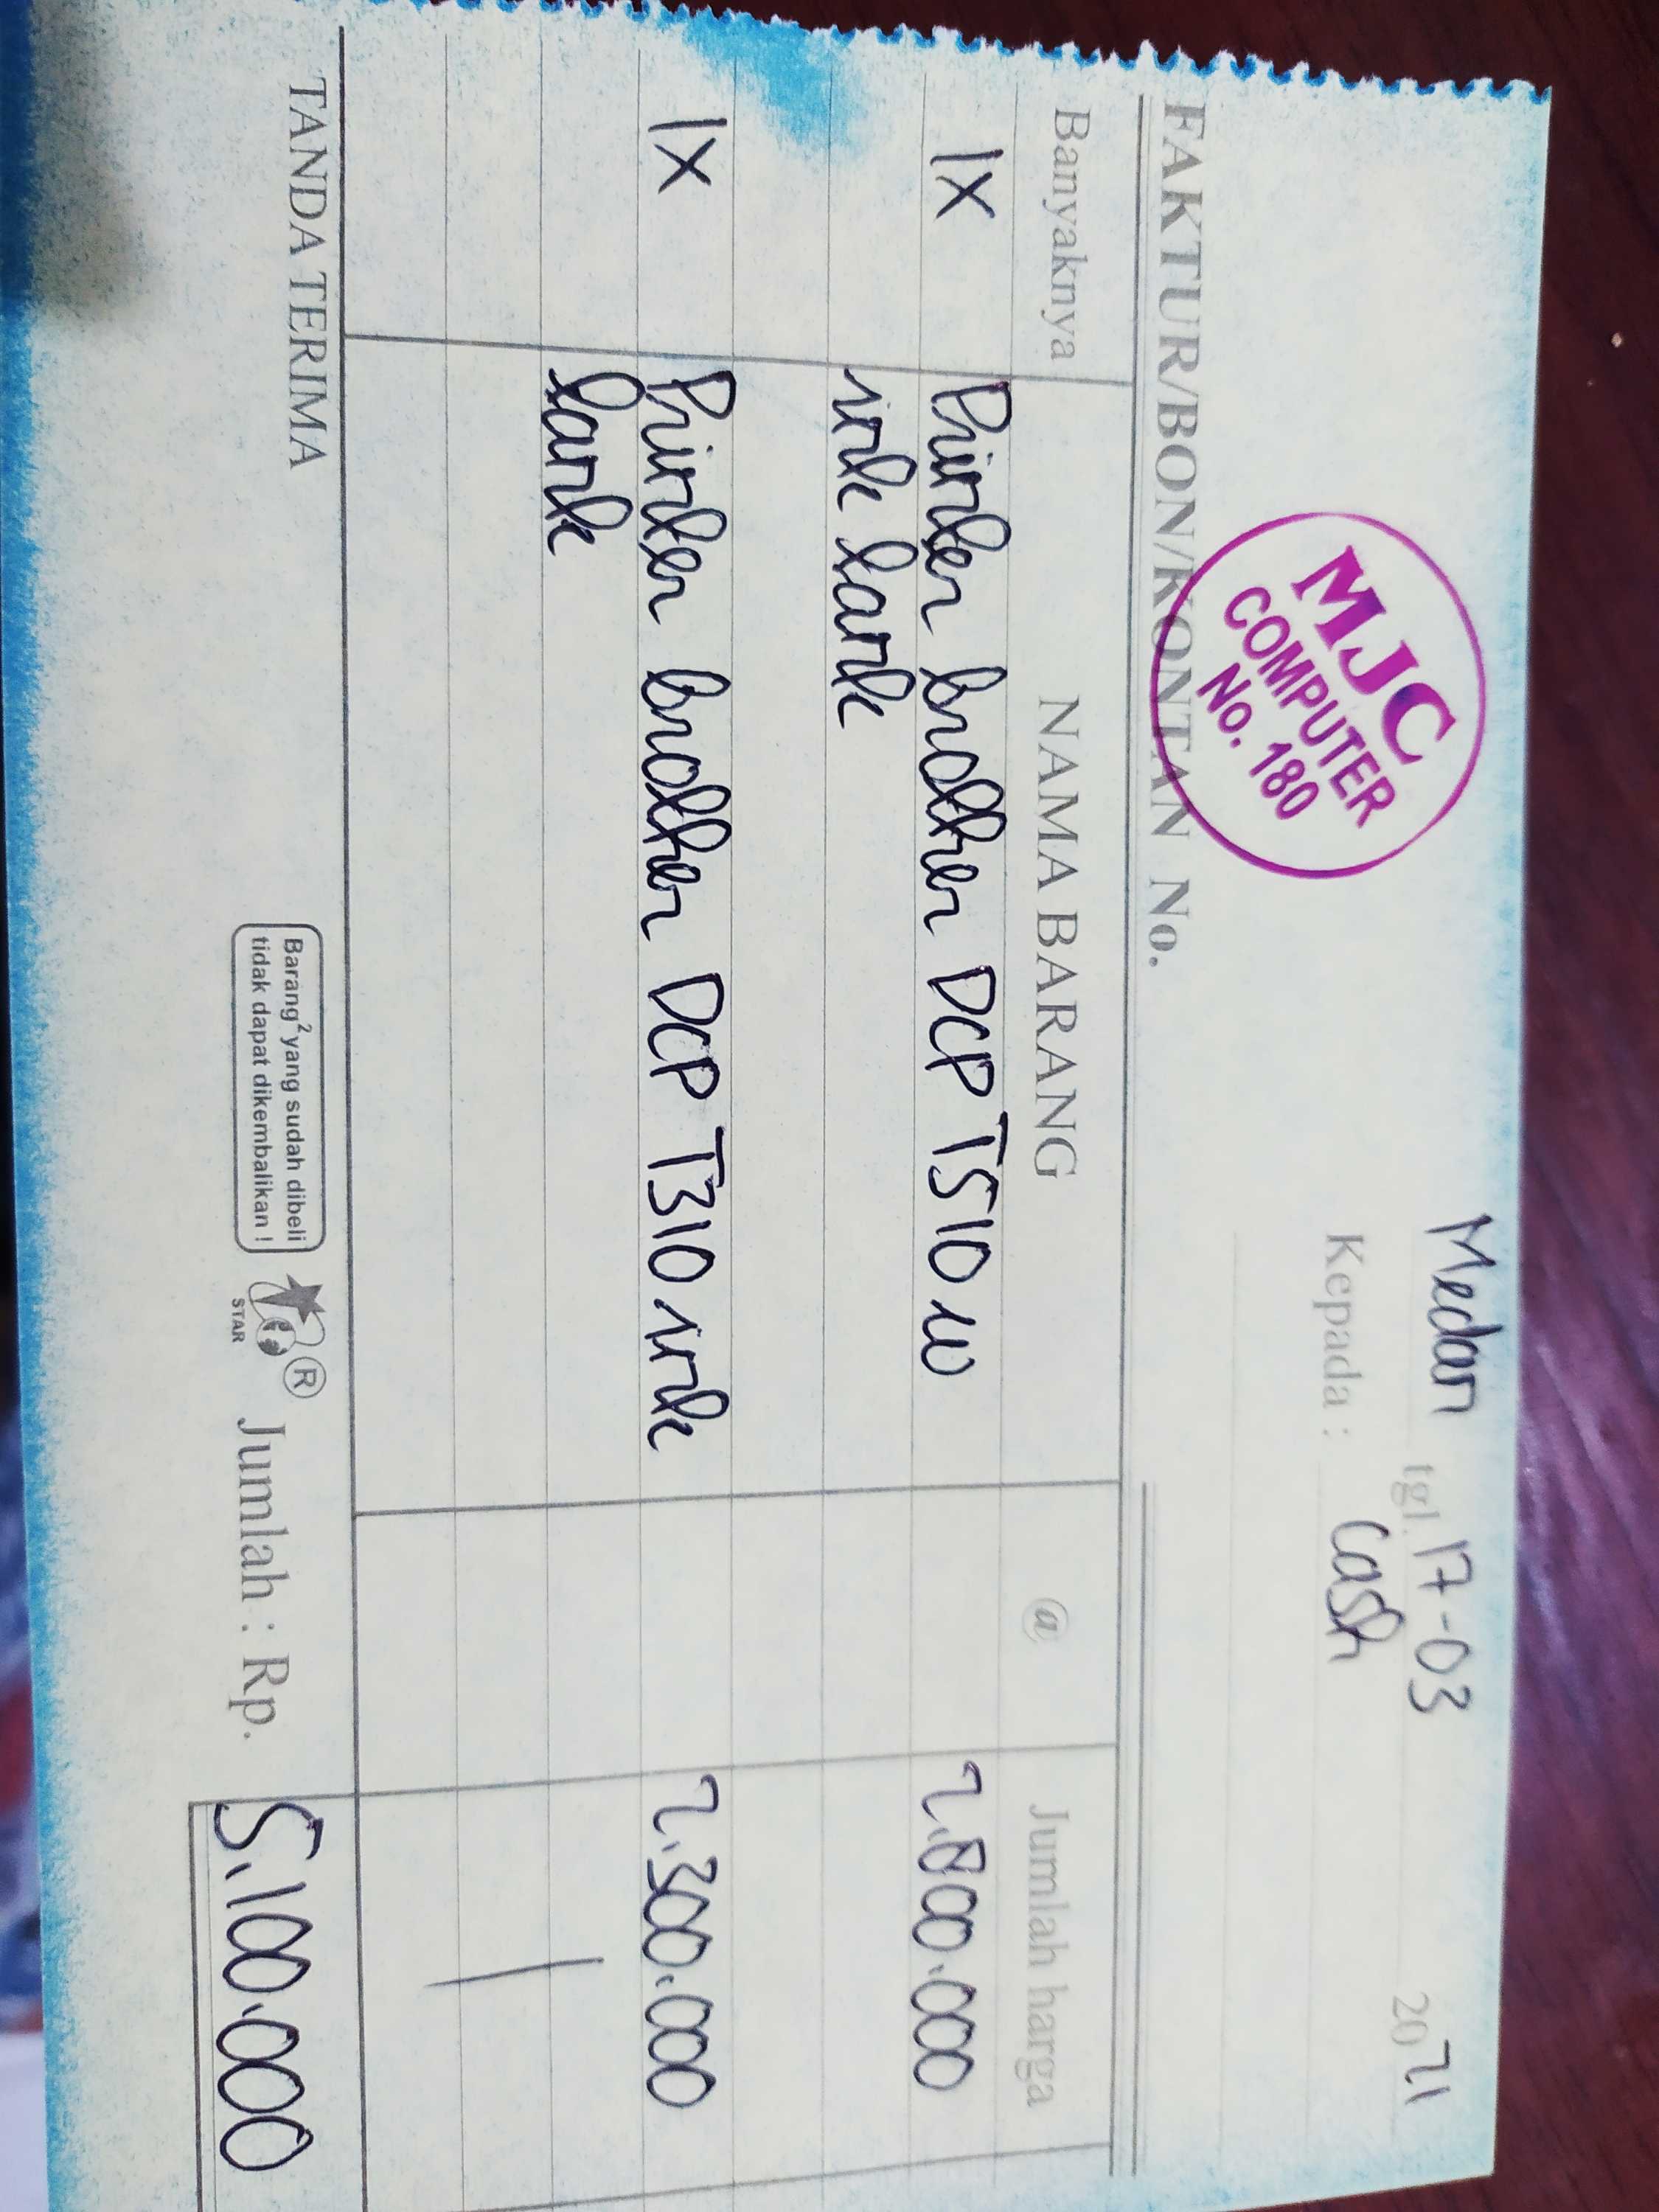 MJC
COMPUTER
No. 180
Medan tgl. 17-03 2021
Kepada : Cash
FAKTUR/BON/KONTAN No.
Banyaknya NAMA BARANG @ Jumlah harga
1x Printer brother DCP T510 w 2.800.000
ink tank
1x Printer brother DCP T310 ink 2.300.000
tank
TANDA TERIMA
Barang² yang sudah dibeli
tidak dapat dikembalikan !
STAR
®
Jumlah : Rp. 5.100.000